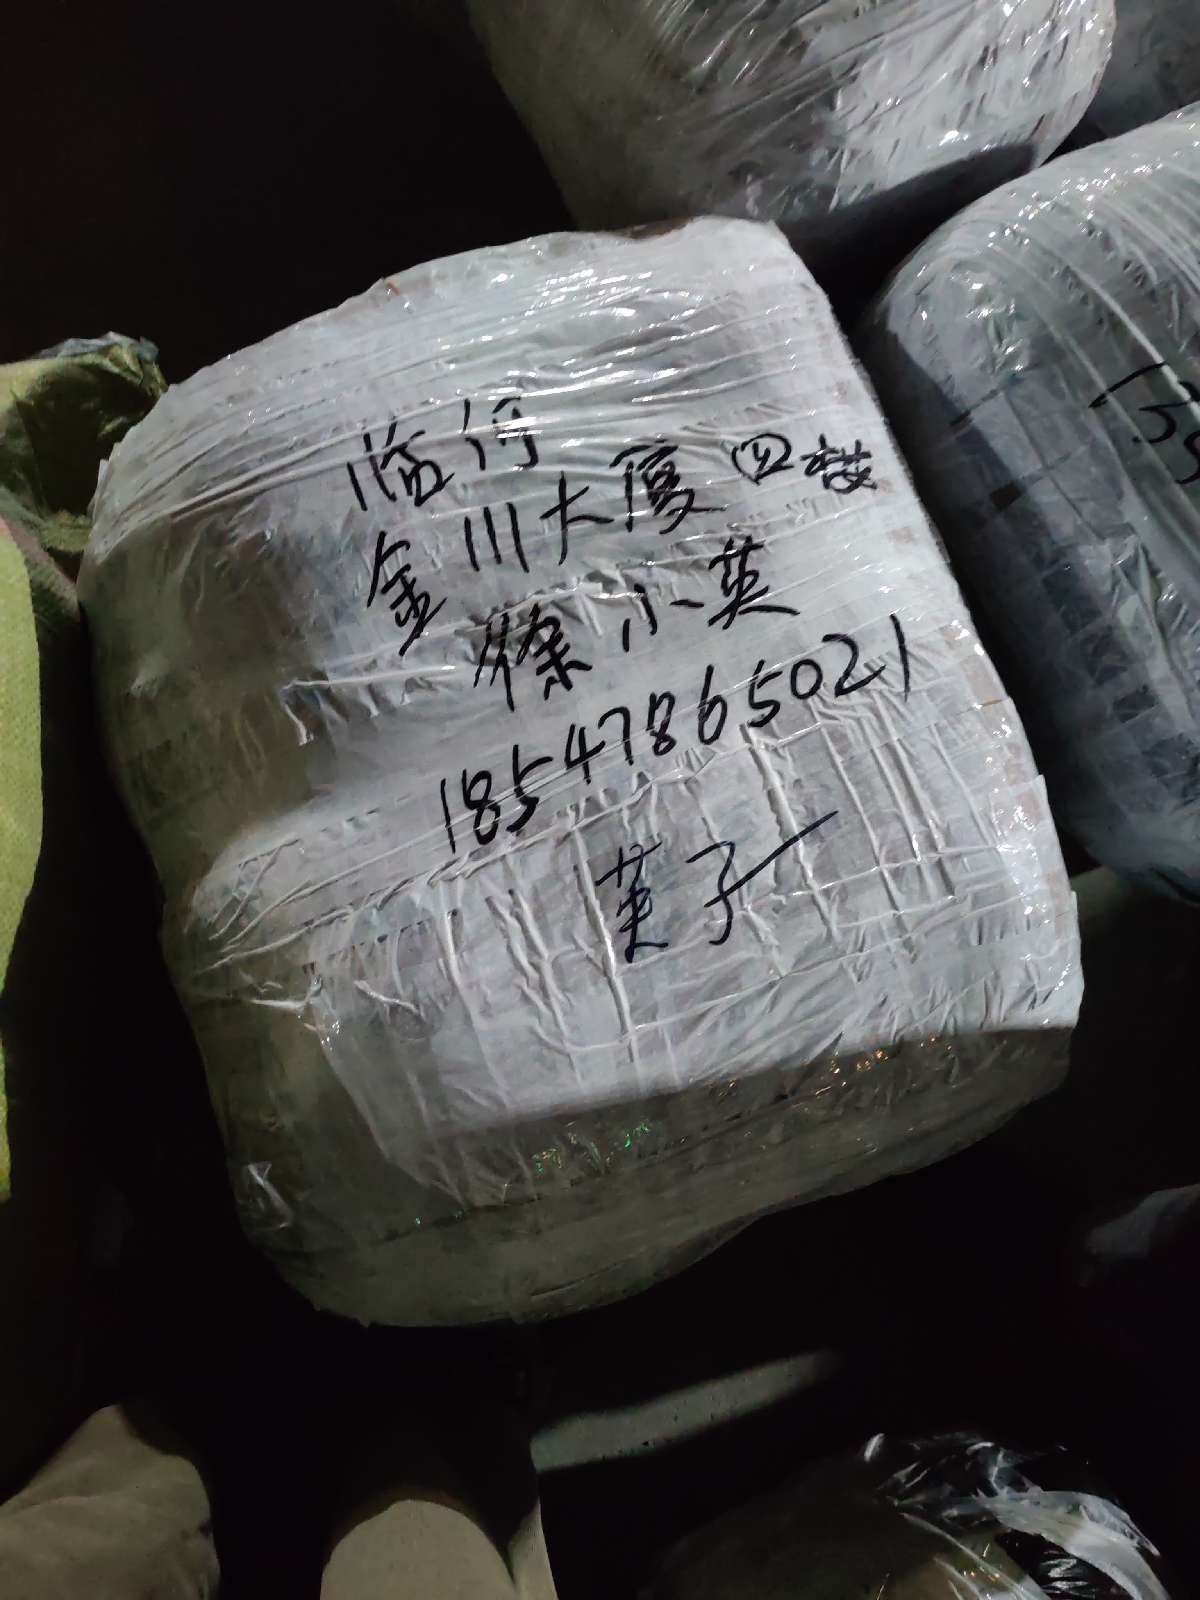 临河
金川大厦四楼
徐小英
18547865021
英子